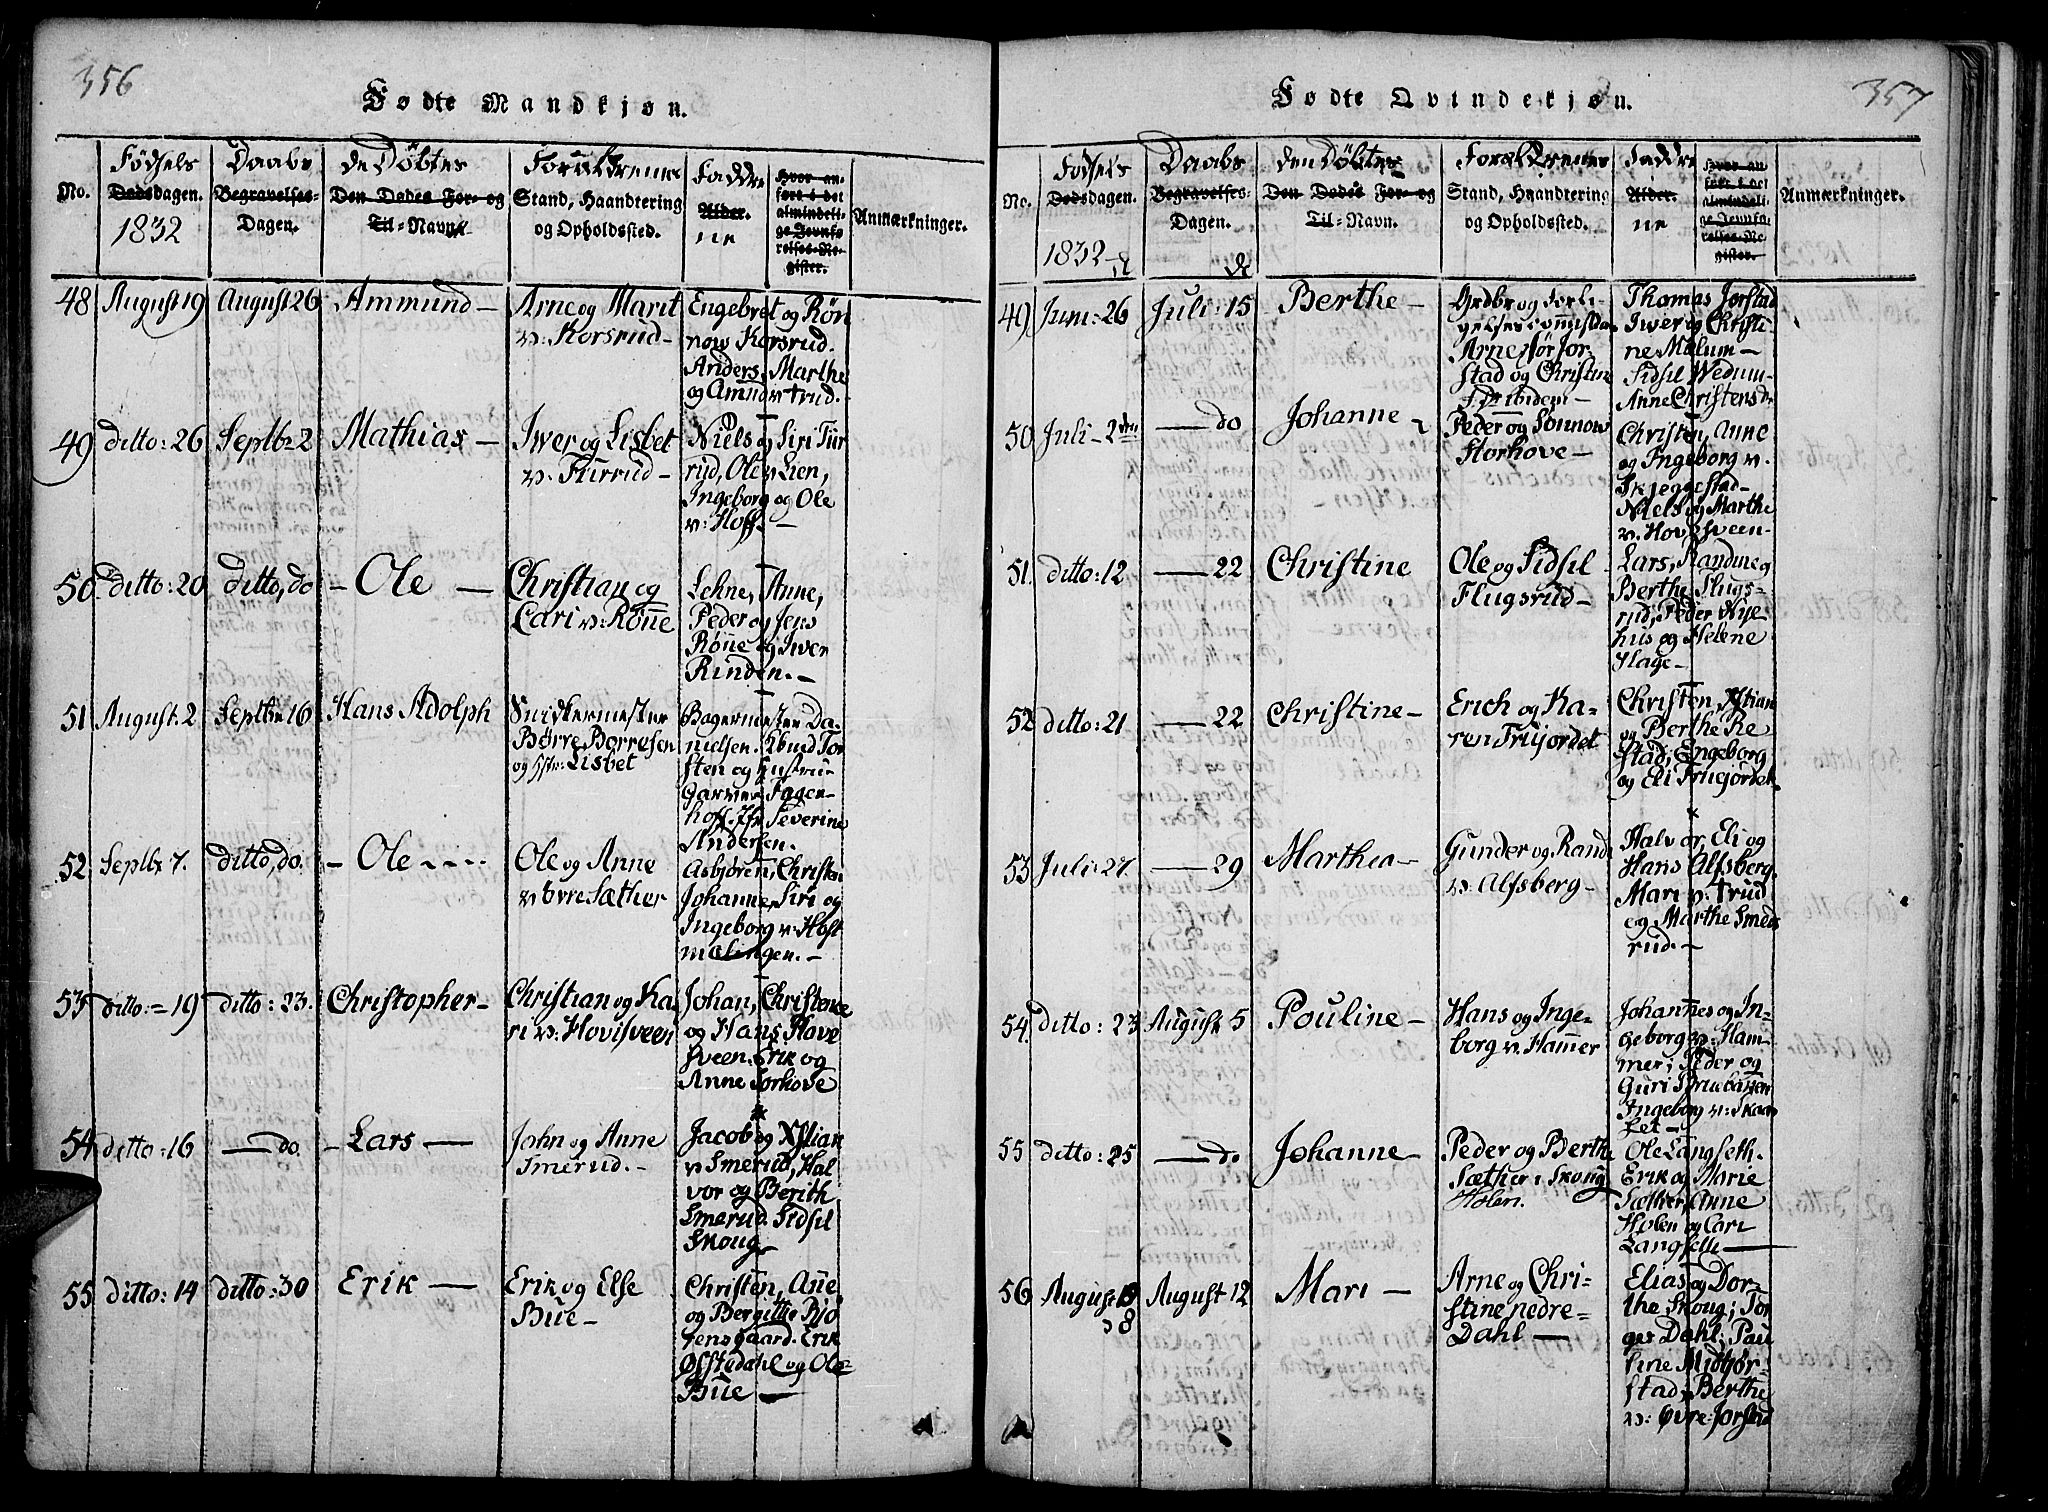 356
Fødte Mandkjøn.
No.
Fødsels
Dødsdagen.
1832
Daabs
Begravelses-
Dagen.
de Døbtes
Den Dødes For- og
Til-Navn
Forældrenes
Stand, Haandtering
og Opholdssted.
Faddre
Alder.
ne
Hvor an-
ført i det
almindeli-
ge Jevnfø-
relses-Re-
gister.
Anmærkninger.
48 August 19 August 26 Ammund –
Arne og Marit
v: Korsrud –
Engebret og Røn
now Korsrud.
Anders, Marthe
og Amund v Trud. –
49 ditto: 26 Septbr 2 Mathias –
Iwer og Lisbet
v: Furrud –
Niels og Siri Fur
rud, Ole v Lien,
Ingeborg og Ole
v: Hoff. –
50. ditto: 20 ditto, do – Ole –
Christian og
Cari v: Rønne
Lehne, Anne,
Peder og Jens
Rønne og Iwer
Rinden. –
51 August. 2 Septbr 16 Hans Adolph
Snidkermester
Børre Borresen
og Hstr: Lisbet
Bagermester Da-
nielsen.
sten og Hustru
Garver Fagen-
hoff. Jfr Severine
Andersen.
52. Septbr 7. ditto, do. – Ole - - - -
Ole og Anne
v Øvre Sæther
Asbjøren, Christen
Johanne, Siri og
Ingeborg v: Høst
mælingen. –
53 ditto: – 19 ditto: 23. Christopher –
Christian og Ka
ri v: Hovisveen
Johan, Christence
og Hans Hove
sveen. Erik og
Anne Jorhove
54 ditto: 16 — do. – Lars —
John og Anne
Smerud. –
Jacob og Xstian
v Smerud, Hal
vor og Berith
Smerud. Sidsel
Skoug –
55 ditto: 14 ditto: 30 Erik —
Erik og Else
Bue –
Christen, Ane,
og Bergitte Bjø
gensgaard. Erik
Østtedahl og Ole
Bue —
357
Fødte Qvindekjøn.
No.
Fødsels
Dødsdagen.
1832
Daabs
Begravelses-
Dagen.
den Døbtes
Den Dødes For- og
Til-Navn.
Forældrenes
Stand, Haandtering
og Opholdssted.
Faddre
Alder.
ne
Hvor an-
ført i det
almindeli-
ge Jevnfø-
relses-Re-
gister.
Anmærkninger.
49 Juni: 26 Juli: 15 Berthe –
og Forli-
gelses commissa
Arne Jør
stad og Christine
ibidem –
Thomas Jorstad
Iwer og Christi-
ne Mælum –
Sidsil Wedum –
Anne Christensdr
50. Juli – 2den — do Johanne –
Peder og Sonnow
Storhove –
Christen, Anne
og Ingeborg v.
Skjeggestad –
Niels og Marthe
v. Hovisveen –
51. ditto: 12 — 22 Christine
Ole og Sidsil
Flugsrud –
Lars, Randine og
Berthe Flugs-
rud, Peder Nye
hus og Helene
Hage –
52 ditto: 21 — 22 Christine –
Erich og Ka-
ren Frujordet
Christen, Xstian
og Berthe Re
stad, Engeborg
og Eli Fruejordet
53 Juli: 27. — 29 Marthea –
Gunder og Randi
v. Alfsberg –
Halvor, Eli og
Hans Alfsberg.
Mari v. Trud
og Marthe Smeds
rud. –
54. ditto: 23 August 5 Pouline –
Hans og Inge-
borg v. Hammer
Johannes og In-
geborg v: Ham-
mer; Peder og
Guri
Ingeborg v: Skaar
set –
55 ditto: 25 — do Johanne –
Peder og Berthe
Sæther i Skoug
Holen.
Ole Langseth.
Erik og Marie
Sætter, Anne
Holen og Cari
Langseth —
56 August August 12 Mari –
8
Arne og Chri-
stine nedre-
Dahl —
Elias og Dor-
the Skoug; Tor
ger Dahl, Pau
line Midtjør-
stad, Berthe
v: Øvre Jorstad